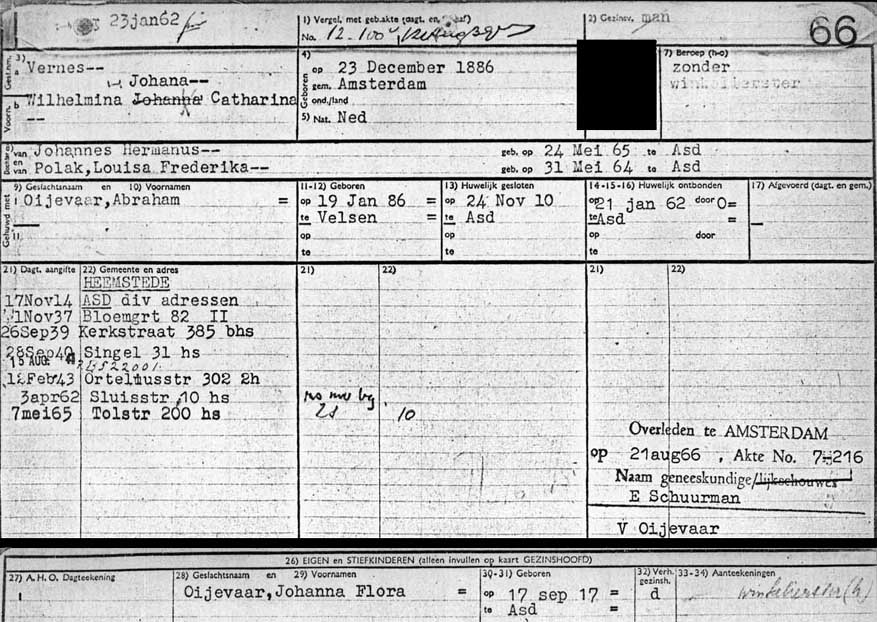 23jan62
1) Vergel. met geb.akte (dagt. en
No.
2) Gezinsv. man
66
Gesl.nm. 3) a Vernes--
Johana--
Voorn. b Wilhelmina Johanna Catharina
--
4)
Geboren op 23 December 1886
gem. Amsterdam
ond./land
5) Nat. Ned
7) Beroep (h-o)
zonder
winkelierster
van Johannes Hermanus-- geb. op 24 Mei 65 te Asd
en van Polak,Louisa Frederika-- geb. op 31 Mei 64 te Asd
Gehuwd met
9) Geslachtsnaam en 10) Voornamen
I Oijevaar,Abraham =
II
11-12) Geboren
op 19 Jan 86 =
te Velsen =
op
te
13) Huwelijk gesloten
op 24 Nov 10
te Asd
op
te
14-15-16) Huwelijk ontbonden
op 21 jan 62 door O=
te Asd =
op door
te
17) Afgevoerd (dagt. en gem.)
21) Dagt. aangifte 22) Gemeente en adres 21) 22) 21) 22)
HEEMSTEDE
17Nov14 ASD div adressen
1Nov37 Bloemgrt 82 II
26Sep39 Kerkstraat 385 bhs
28Sep40 Singel 31 hs
15 AUG.
Febr43 Orteliusstr 302 2h
3apr62 Sluisstr 10 hs
7mei65 Tolstr 200 hs
10
Overleden te AMSTERDAM
op 21aug66 , Akte No. 7-216
Naam geneeskundige/lijkschouwer
E Schuurman
V Oijevaar
26) EIGEN en STIEFKINDEREN (alleen invullen op kaart GEZINSHOOFD)
27) A.H.O. Dagteekening 28) Geslachtsnaam en 29) Voornamen 30-31) Geboren 32) Verh. gezinsh. 33-34) Aanteekeningen
Oijevaar,Johanna Flora = op 17 sep 17 = d winkelierster (h)
te Asd =